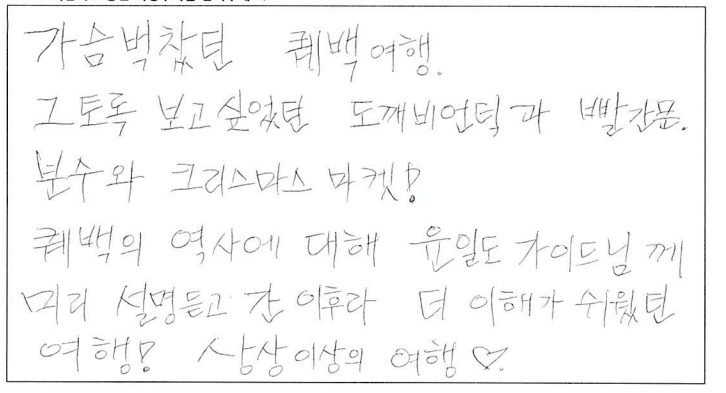 가슴벅찼던 퀘백여행.
그토록 보고싶었던 도깨비언덕과 빨간문.
분수와 크리스마스 마켓!
퀘백의 역사에 대해 윤일도 가이드님께
미리 설명듣고 간 이후라 더 이해가 쉬웠던
여행! 상상이상의 여행 ♡.